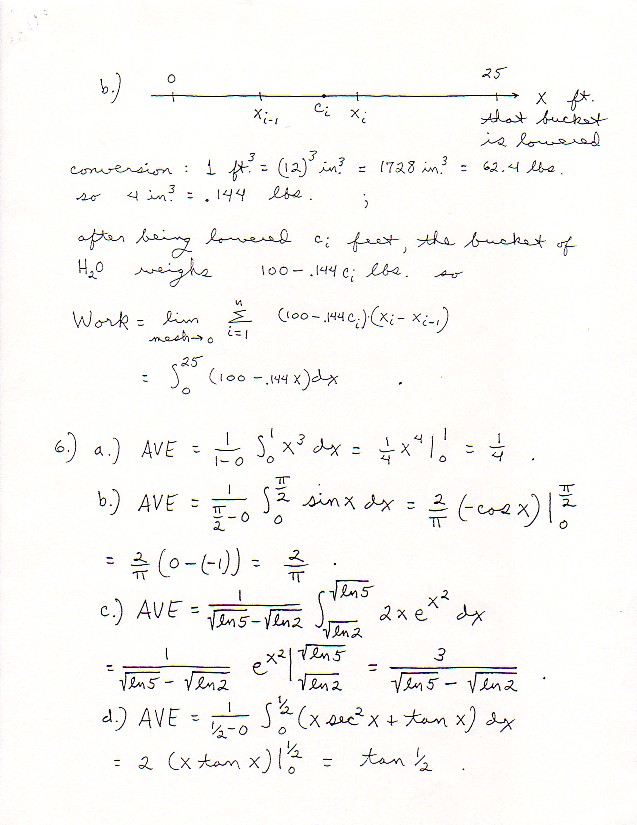 b.) 0 25
x_{i-1} c_i x_i x ft.
that bucket
is lowered
conversion : 1 ft.³ = (12)³ in.³ = 1728 in.³ = 62.4 lbs.
so 4 in.³ = .144 lbs. ;
after being lowered c_i feet, the bucket of
H₂O weighs 100 - .144 c_i lbs. so
Work = lim_{mesh→0} Σ_{i=1}^{n} (100 - .144 c_i)·(x_i - x_{i-1})
= ∫_0^{25} (100 - .144 x) dx .
6.) a.) AVE = 1/(1-0) ∫_0^1 x³ dx = 1/4 x⁴ |_0^1 = 1/4 .
b.) AVE = 1/(π/2 - 0) ∫_0^{π/2} sin x dx = 2/π (-cos x) |_0^{π/2}
= 2/π (0 - (-1)) = 2/π .
c.) AVE = 1/(√ln 5 - √ln 2) ∫_{√ln 2}^{√ln 5} 2x e^{x²} dx
= 1/(√ln 5 - √ln 2) e^{x²} |_{√ln 2}^{√ln 5} = 3/(√ln 5 - √ln 2) .
d.) AVE = 1/(1/2 - 0) ∫_0^{1/2} (x sec² x + tan x) dx
= 2 (x tan x) |_0^{1/2} = tan 1/2 .